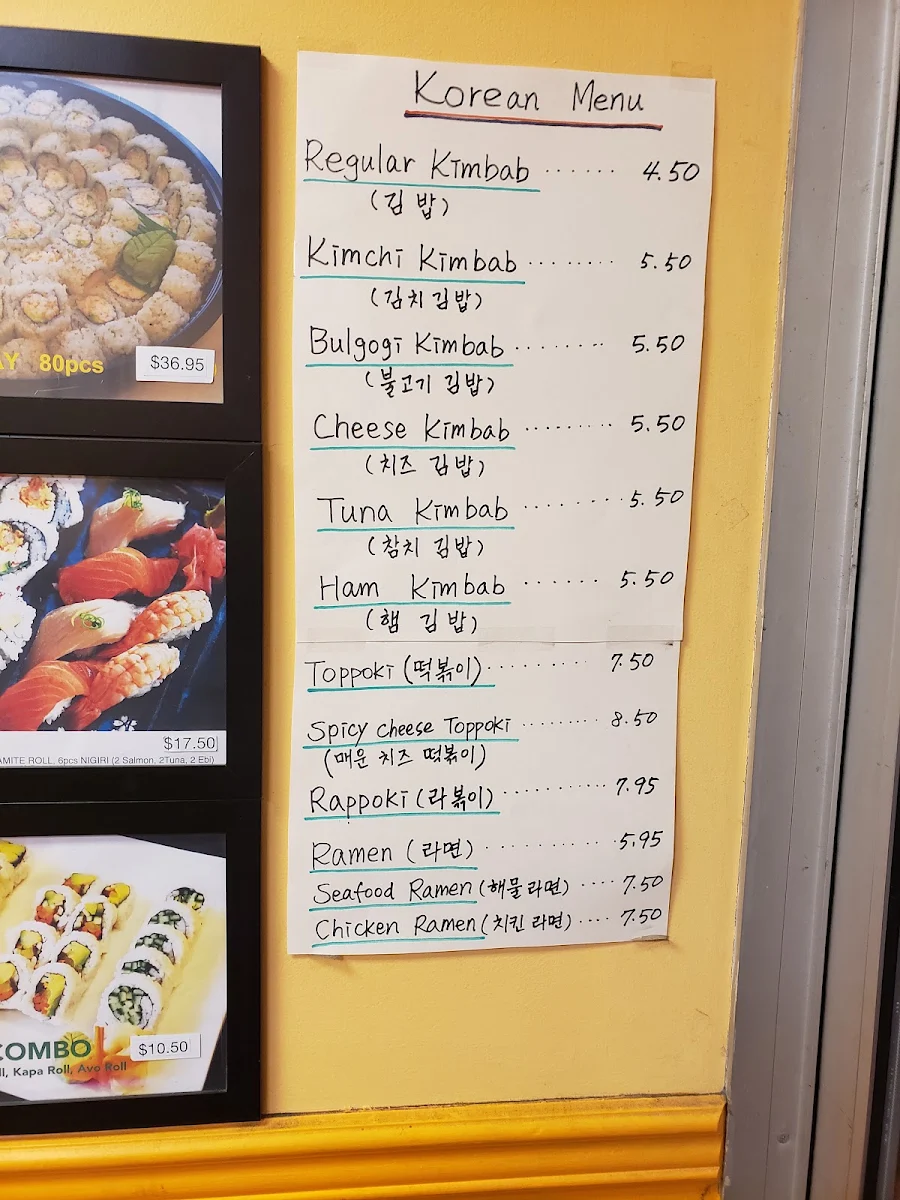 Korean Menu
Regular Kimbab ....... 4.50
(김 밥)
Kimchi Kimbab ........ 5.50
(김치 김밥)
Bulgogi Kimbab ........ 5.50
(불고기 김밥)
Cheese Kimbab ......... 5.50
(치즈 김밥)
Tuna Kimbab .......... 5.50
(참치 김밥)
Ham Kimbab ....... 5.50
(햄 김 밥)
Toppoki (떡볶이) ......... 7.50
Spicy cheese Toppoki ......... 8.50
(매운 치즈 떡볶이)
Rappoki (라볶이) ........... 7.95
Ramen (라면) ........... 5.95
Seafood Ramen (해물라면) .... 7.50
Chicken Ramen (치킨 라면) .... 7.50
80pcs
$36.95
$17.50
ROLL, 6pcs NIGIRI (2 Salmon, 2Tuna, 2 Ebi)
COMBO
$10.50
Kapa Roll, Avo Roll